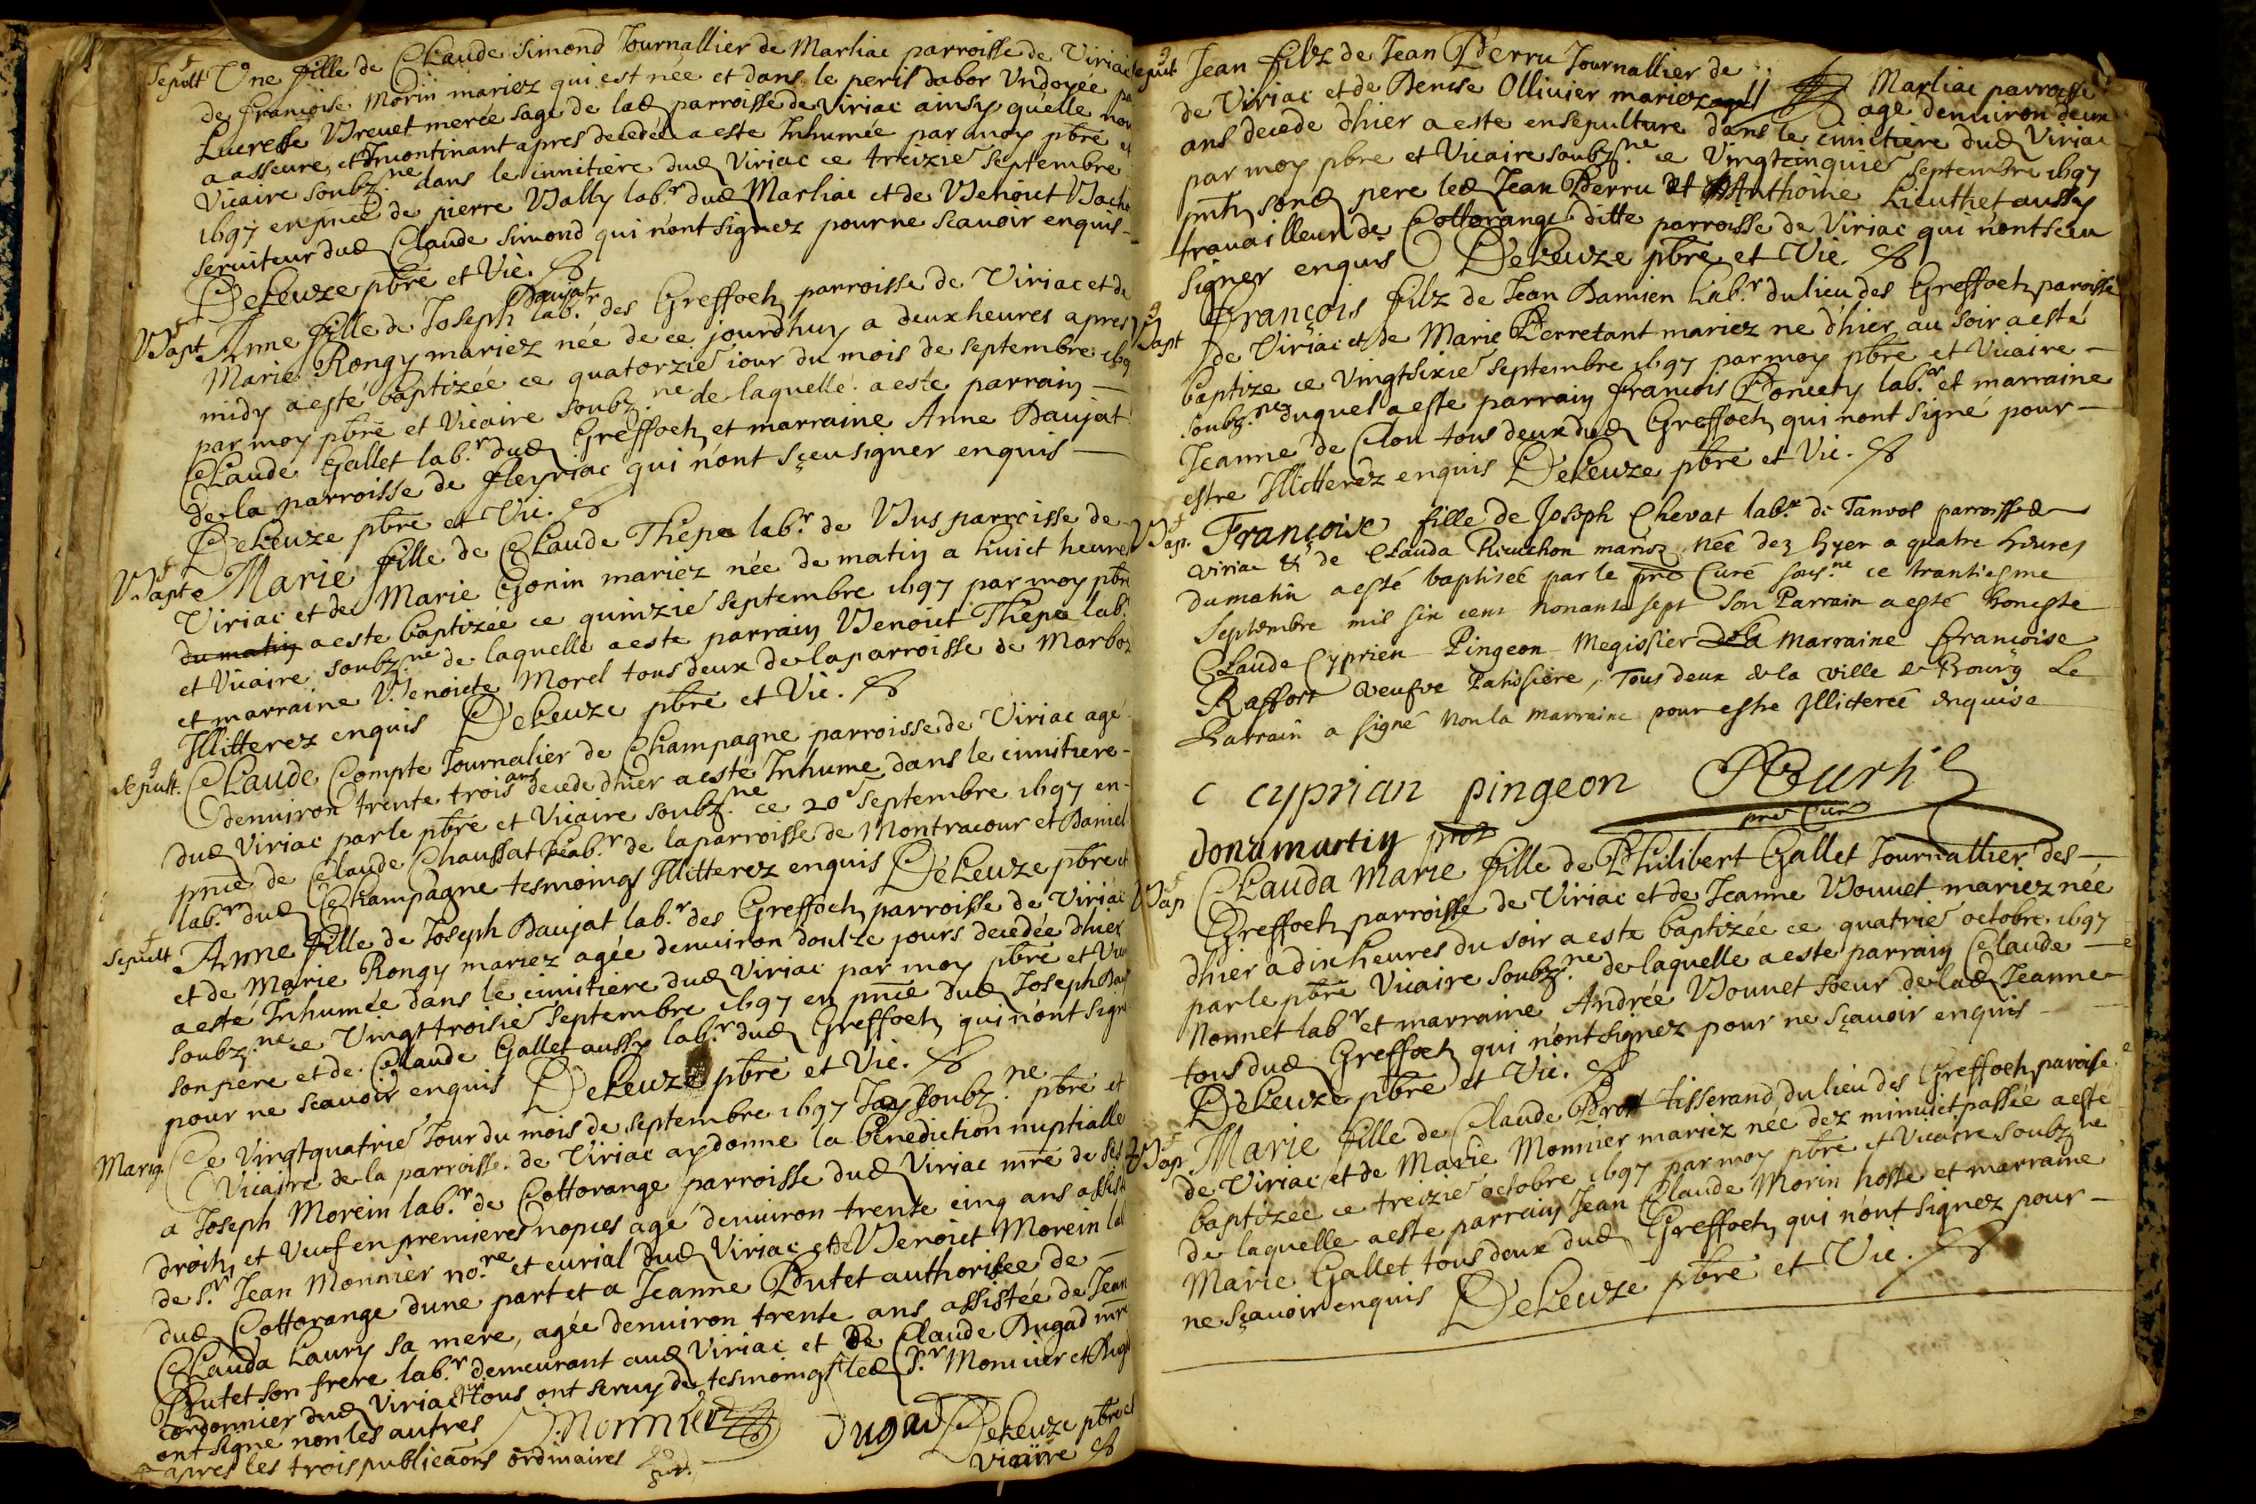 sepult Une fille de Claude Simond Journallier de Marliac parroisse de Viriac
de Françoise Morin mariez qui est née et dans le peril dabor Undoyée par
Lucresse Brevet merée sage de lad parroisse de Viriac ainsy quelle nou
a asseure, et Incontinant apres decedée a este Inhumée par moy pbre et
Vicaire soubz.ne dans le cimitiere dud Viriac ce treizie Septembre
1697 en pnce de pierre Bally lab.r dud Marliac et de Benoit Vach
serviteur dud Claude Simond qui n'ont signez pour ne scavoir enquis
DeLeuze pbre et Vic.
Bapt Anne fille de Joseph Baujat lab.r des Greffoetz parroisse de Viriac et de
Marie Rongy mariez née de ce jourdhuy a deux heures apres
midy a esté baptizée ce quatorzie iour du mois de septembre 1697
par moy pbre et Vicaire soubz.ne de laquelle a este parrain
Claude Gallet lab.r dud Greffoetz et marraine Anne Baujat
de la parroisse de fleyriac qui n'ont sçeu signer enquis
DeLeuze pbre et Vic.
Bapt Marie fille de Claude Thepe lab.r de Bus parroisse de
Viriac et de Marie Gonin mariez née de matin a huict heures
du matin a este baptizée ce quinzie septembre 1697 par moy pbre
et Vicaire soubz.ne de laquelle a este parrain Benoict Thepe lab.
et marraine Benoicte Morel tous deux de la parroisse de Marboz
Illitterez enquis DeLeuze pbre et Vic.
sepult. Claude Compte Journalier de Champagne parroisse de Viriac agé
denviron trente trois ans decede dhier a esté Inhumé dans le cimitiere
dud Viriac par le pbre et Vicaire soubz.ne ce 20e septembre 1697 en
pnce de Claude Chaussat lab.r de la parroisse de Montracour et Daniel
lab.r dud Champagne tesmoings Illitterez enquis DeLeuze pbre et
sepult Anne fille de Joseph Baujat lab.r des Greffoetz parroisse de Viriac
et de Marie Rongy mariez agée denviron doulze jours decedée dhier
a este Inhumée dans le cimitiere dud Viriac par moy pbre et Vic
soubz.ne ce Vingt troisie septembre 1697 en pnce dud Joseph Bau
son pere et de Claude Gallet aussy lab.r dud Greffoetz qui n'ont signé
pour ne scavoir enquis DeLeuze pbre et Vic.
Mariag. Ce Vingtquatrie Jour du mois de septembre 1697 Jay soubz.ne pbre et
Vicaire de la parroisse de Viriac ay donne la benediction nuptialle
a Joseph Morein lab.r de Cottorange parroisse dud Viriac mre de ses
droitz et Veuf en premieres nopces agé denviron trente cinq ans assist
de S.r Jean Monnier no.re et curial dud Viriac et de Benoict Morein lab
dud Cottorange dune part et a Jeanne Butet authorisee de
Clauda Laury sa mere, agée denviron trente ans assistée de Jean
Butet son frere lab.r demeurant aud Viriac et de Claude Dugad mre
Cordonnier dud Viriac qui tous ont servy de tesmoings led S.r Monnier et Dugad
ont signé non les autres Monnier Dugad DeLeuze pbre et
apres les trois publicaons ordinaires vicaire
sepult Jean filz de Jean Perru Journallier de Marliac parroisse
de Viriac et de Denise Ollivier mariez agé denviron deux
ans decede dhier a este ensepulture dans le cimitiere dud Viriac
par moy pbre et Vicaire soubz.ne ce Vingtcinquie septembre 1697
pntz sond pere led Jean Perru et Anthoine Lieuthet aussy
travailleur de Cottorange ditte parroisse de Viriac qui n'ont sceu
signer enquis DeLeuze pbre et Vic.
Bapt François filz de Jean Damien Lab.r du lieu des Greffoetz paroisse
de Viriac et de Marie Perretant mariez ne d'hier au soir a esté
baptize ce Vingtsixie septembre 1697 par moy pbre et Vicaire
soubz.ne duquel a este parrain francois Poncety lab.r et marraine
Jeanne de Clou tous deux dud Greffoetz qui nont signé pour
estre Illitterez enquis DeLeuze pbre et Vic.
Bap. Françoise fille de Joseph Chevat lab.r de Tanvol parroisse de
viriac & de Clauda Pieuchon mariez née dez hyer a quatre heures
du matin a esté baptiseé par le pre Curé sous.ne ce trantiesme
Septembre mil six cent nonante sept son Parrain a esté honeste
Claude Cyprien Pingeon Megissier Marraine Françoise
Raffort veufve Patissiere, Tous deux de la ville de Bourg Le
Parrain a signé non la marraine pour estre Illittereé enquise
C cyprian pingeon
pre Curé
donamartin
Bap Clauda Marie fille de Philibert Gallet Journallier des
Greffoetz parroisse de Viriac et de Jeanne Bonnet mariez née
dhier a dix heures du soir a este baptizée ce quatrie octobre 1697
par le pbre Vicaire soubz.ne de laquelle a este parrain Claude
Nonnet lab.r et marraine Andrée Bonnet soeur de lad Jeanne
tous dud Greffoetz qui n'ont signez pour ne sçavoir enquis
DeLeuze pbre et Vic.
Bap Marie fille de Claude Brot tisserand du lieu des Greffoetz paroise
de Viriac et de Marie Monnier mariez née dez minuict passée a esté
baptizée ce treizie octobre 1697 par moy pbre et Vicaire soubz.ne
de laquelle a este parrain Jean Claude Morin hoste et marraine
Marie Gallet tous deux dud Greffoetz qui n'ont signez pour
ne sçavoir enquis DeLeuze pbre et Vic.